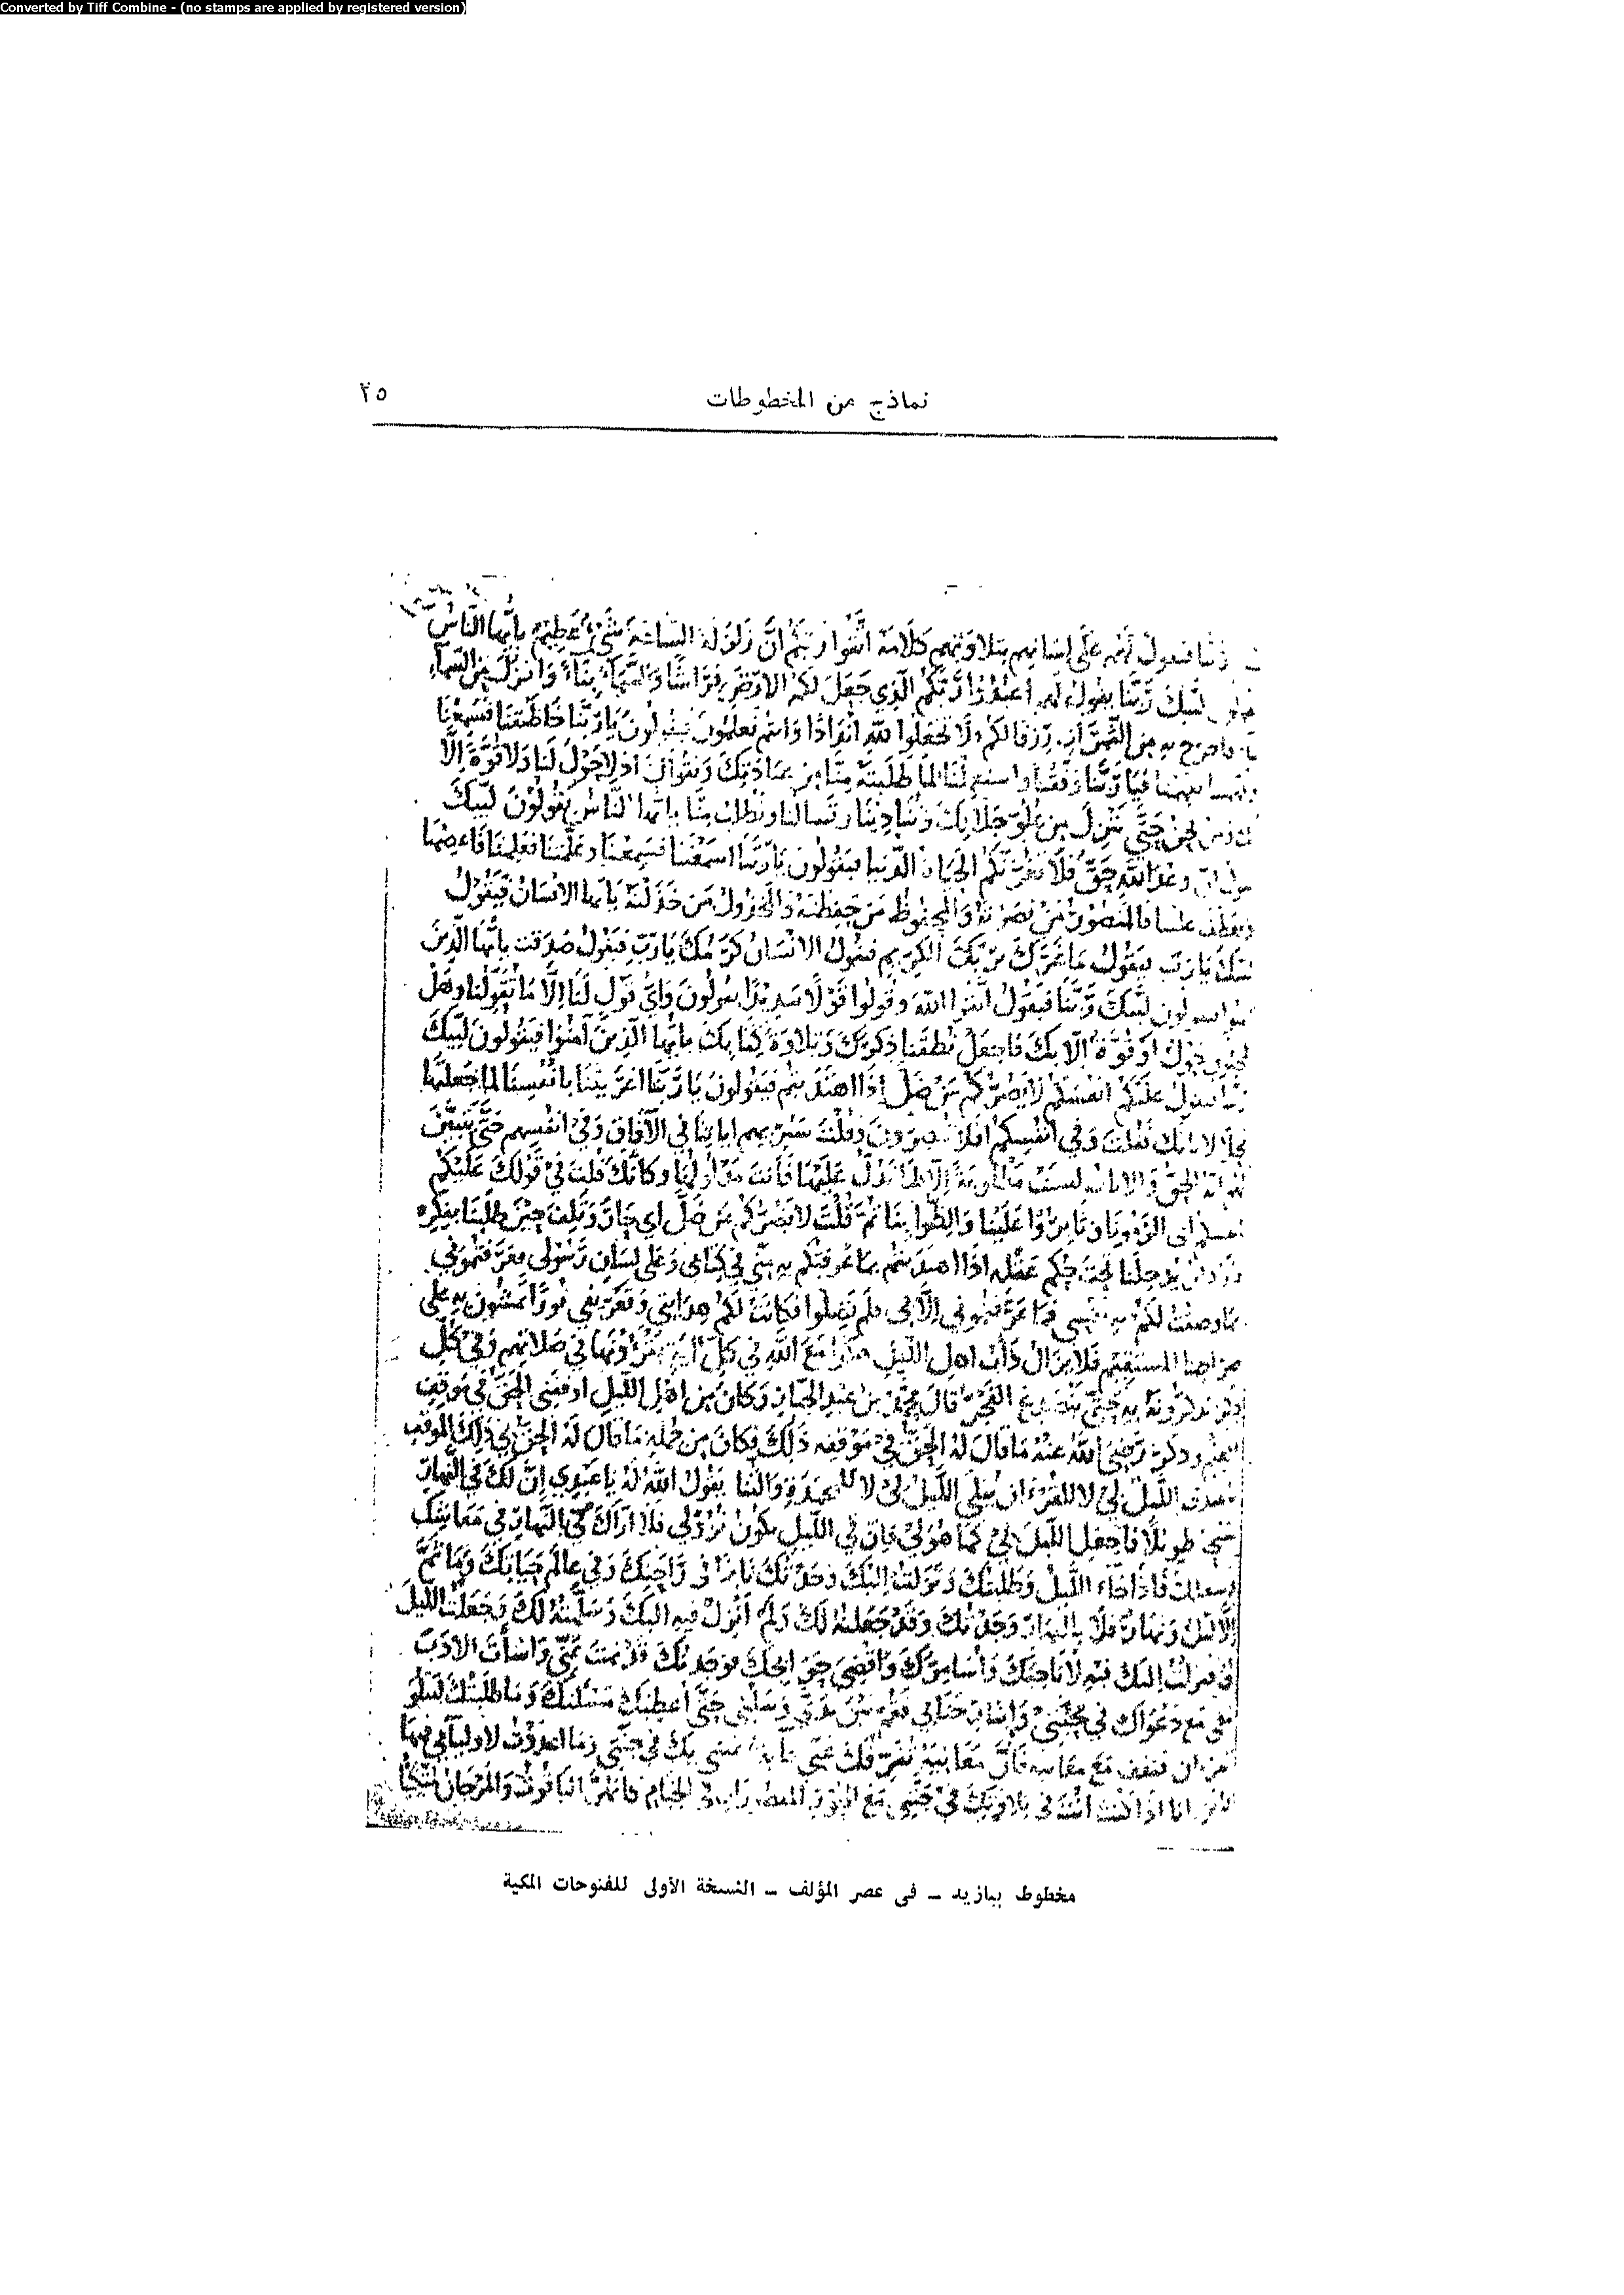 Converted by Tiff Combine - (no stamps are applied by registered version)
نماذج من المخطوطات
٢٥
ربنا فيقول لهم على لسانهم بتلاوتهم كلامه اتقوا ربكم ان زلزلة الساعة شيء عظيم يأيها الناس
لبيك ربنا يقول لهم اعبدوا ربكم الذي جعل لكم الارض فراشا والسماء بناء وانزل من السماء
فاخرج به من الثمرات رزقا لكم فلا تجعلوا لله اندادا وانتم تعلمون فيقولون يا ربنا خاطبتنا فسمعنا
ففهمنا فيا ربنا وفقنا واستعملنا لما طلبته منا من عبادتك وتقواك اذ لا حول لنا ولا قوة الا
نحن حتى تنزل من علو جلالك وتنادينا وتسالنا وتطلب منا يا ايها الناس يقولون لبيك
ان وعد الله حق فلا تغرنكم الحياة الدنيا فيقولون يا ربنا اسمعتنا فسمعنا وعلمتنا فعلمنا فاعصمنا
وتعطف علينا فالمنصور من نصرته والمحفوظ من حفظته والمخذول من خذلته يا ايها الانسان فيقول
لبيك يا رب فيقول ما غرك بربك الكريم فيقول الانسان كرمك يا رب فيقول صدقت يا ايها الذين
امنوا لبيك ربنا فيقول اتقوا الله وقولوا قولا سديدا يقولون واي قول لنا الا ما تقولنا وهل
حول او قوة الا بك فاجعل نطقنا ذكرك وتلاوة كتابك يا ايها الذين آمنوا فيقولون لبيك
ربنا فيقول عليكم انفسكم لا يضركم من ضل اذا اهتديتم فيقولون يا ربنا اغريتنا بانفسنا لما جعلتها
فقلت وفي انفسكم افلا تبصرون وقلت سنريهم اياتنا في الآفاق وفي انفسهم حتى يتبين
لهم انه الحق والايات ليست مطلوبة الا لما تدل عليها فانت مدلولها وكأنك قلت في قولك عليكم
وثابروا علينا والظوا بنا ثم قلت لا يضركم من ضل اي حار وتلف حين طلبنا بفكره
يدخلنا تحت حكم عقله اذا اهتديتم بما عرفتكم به مني في كتابي وعلى لسان رسولي فعرفتموني
بما وصفت لكم به نفسي فما عرفتموني الا بي فلم تضلوا فكانت لكم هدايتي وتعريفي نورا تمشون به على
صراطنا المستقيم فلا يزال دأب اهل الليل هكذا مع الله في كل آية يقرؤونها في صلاتهم وفي كل
ذكر يذكرونه به حتى ينصدع الفجر قال محمد بن عبد الجبار وكان من اهل الليل اوقفني الحق في موقف
وذكر رضي الله عنه ما قال له الحق في موقفه ذلك فكان من جملة ما قال له الحق في ذلك الموقف
الليل لي لا للقرءان يتلى الليل لي لا للمحمدة والثنا يقول الله له يا عبدي ان لك في النهار
سبحا طويلا فاجعل الليل لي كما هو لي فان في الليل يكون نزولي فلا اراك في النهار في معاشك
فاذا جاء الليل وطلبتك ونزلت اليك وجدتك نائما في راحتك وفي عالم حياتك وما ثم
الا ليل ونهار فلا بالنهار وجدتك وقد جعلته لك ولم انزل فيه اليك وسلمته لك وجعلت الليل
لي فنزلت اليك فيه لاناجيك واسامرك واقضي حوايجك فوجدتك قد نمت عني واسأت الادب
معي مع دعواك في محبتي وايثار جنابي فقم بين يدي وسلني حتى اعطيك مسئلتك وما طلبتك لتتلو
القرءان فتقف مع معانيه فان معانيه تفرقك عني فآية تمشي بك في جنتي وما اعددت لاوليآي فيها
فاين انا اذا كنت انت في تلاوتك في جنتي مع الحور المقصورات في الخيام كانهن الياقوت والمرجان متكئا
مخطوط بيازيد – فى عصر المؤلف – النسخة الأولى للفتوحات المكية